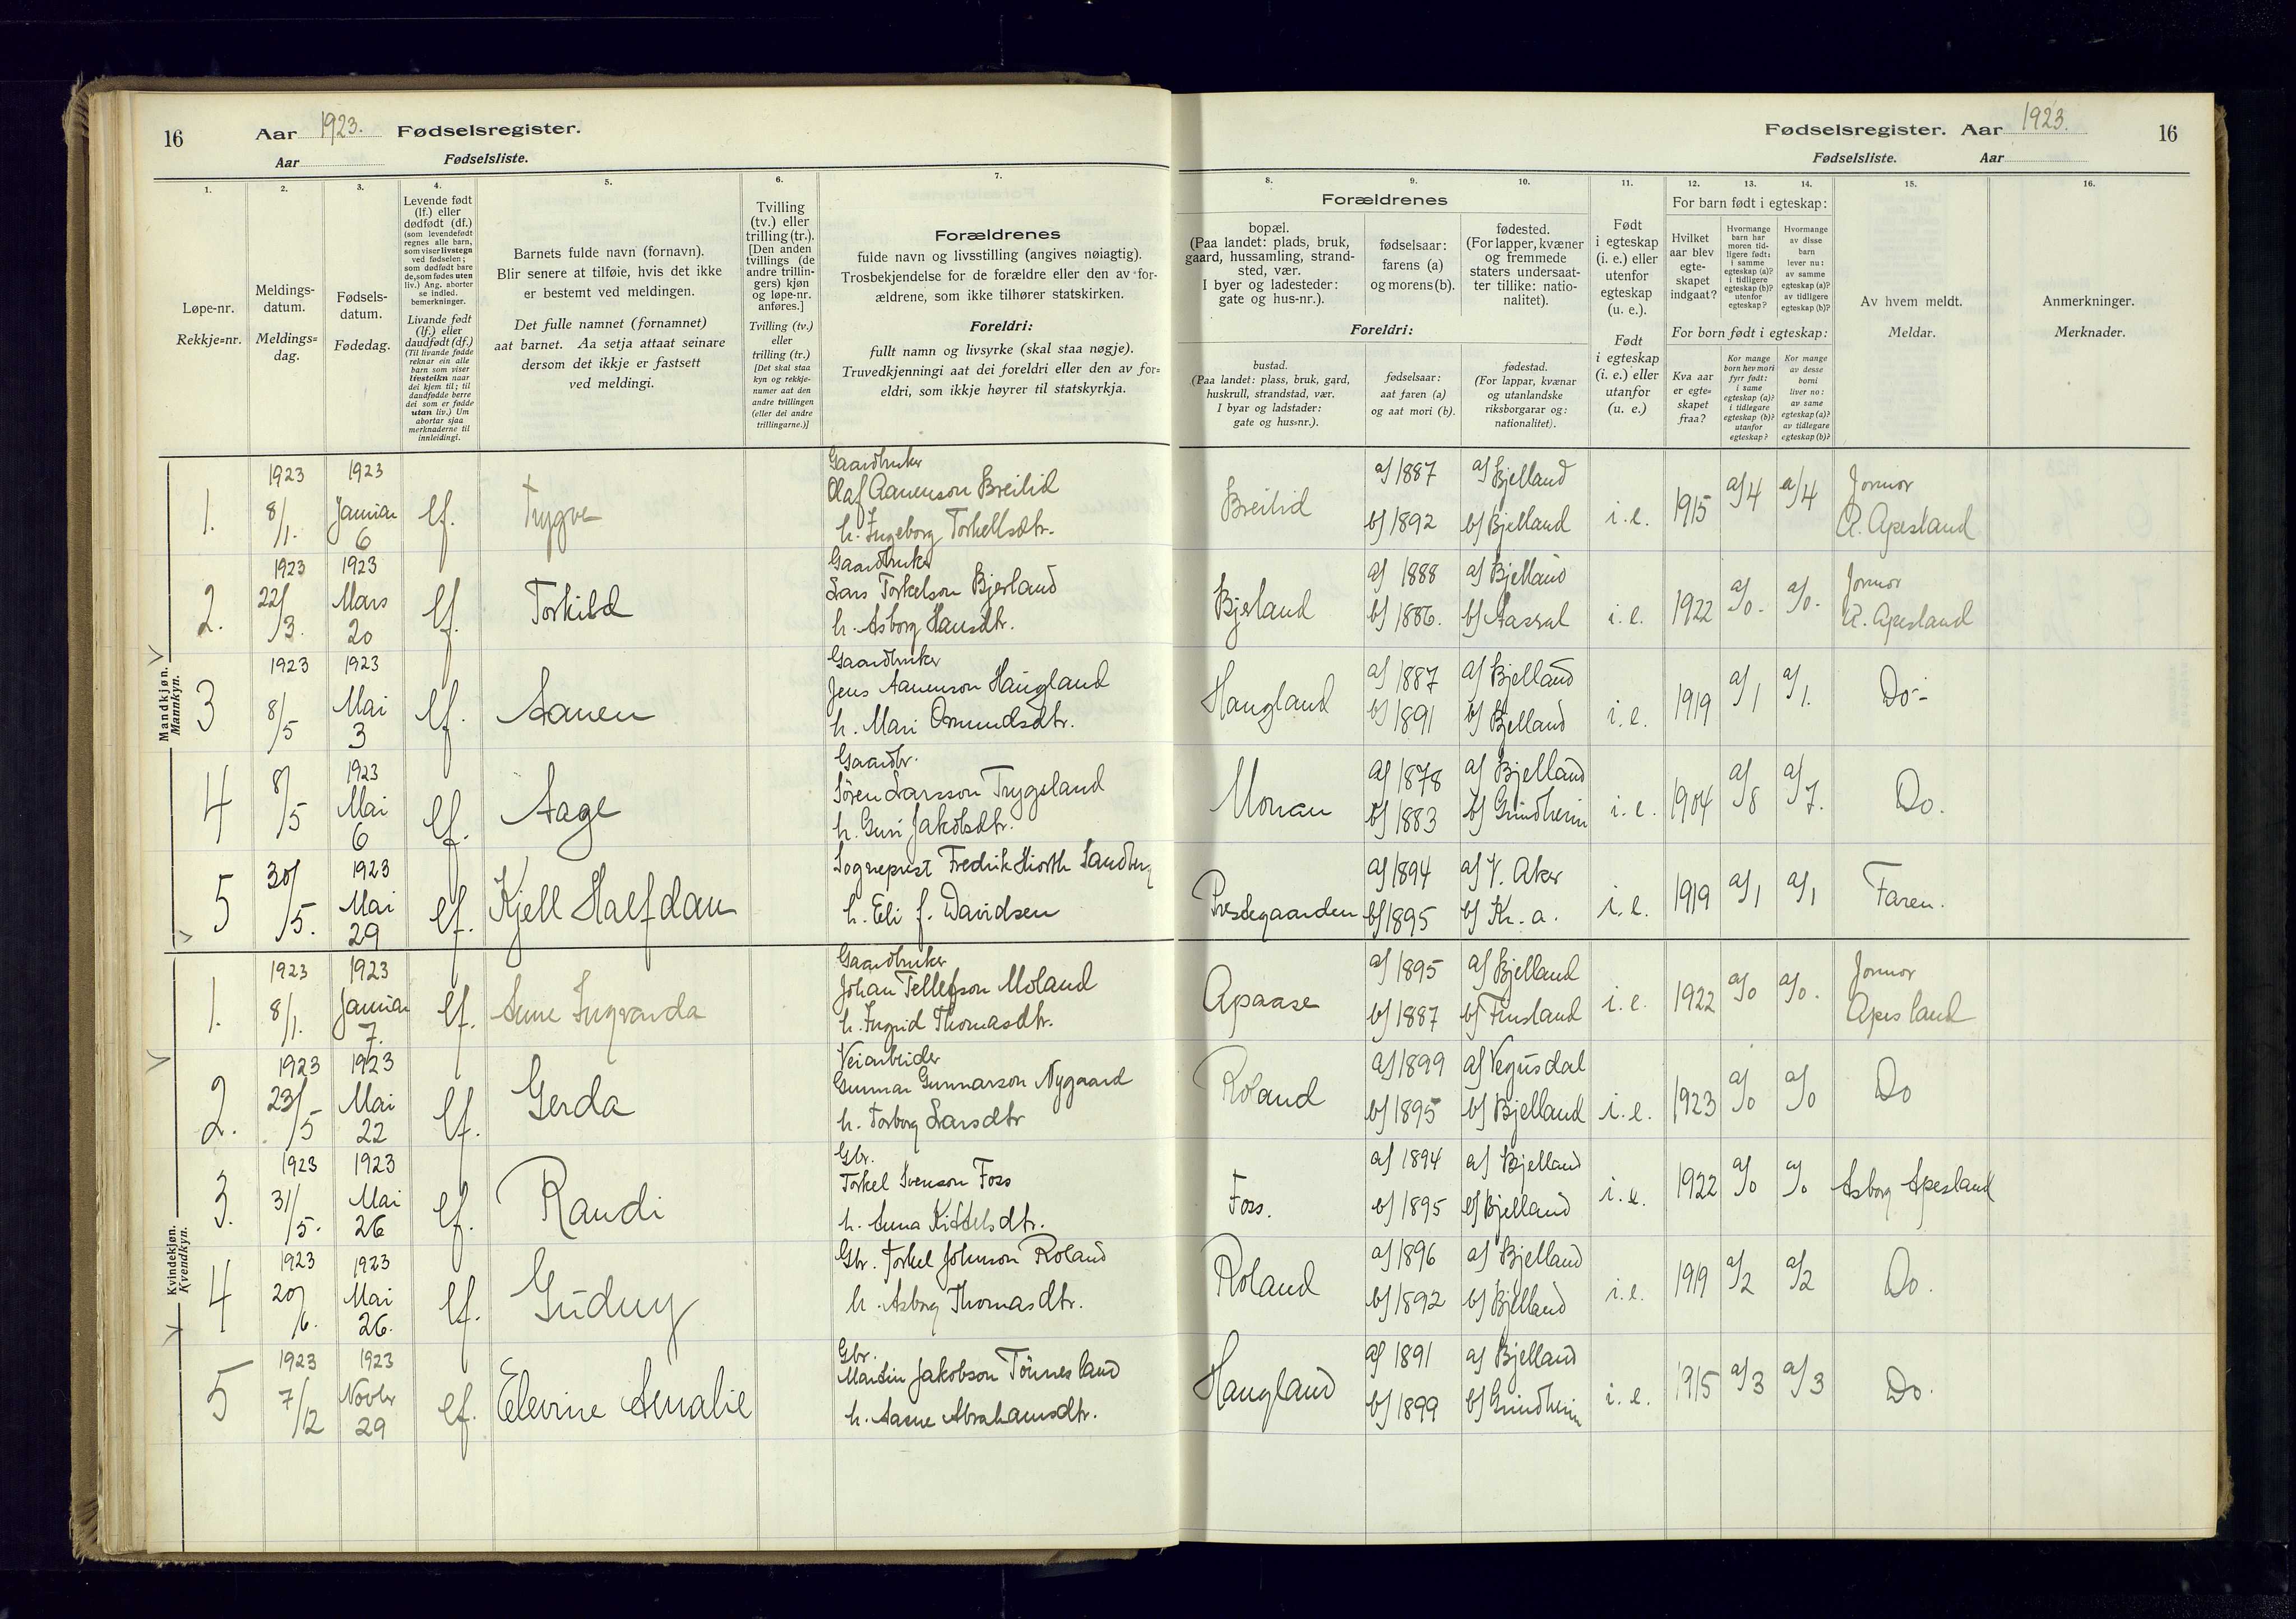 16 Aar 1923. Fødselsregister.
Aar Fødselsliste.
1. 2. 3. 4. 5. 6. 7.
Løpe-nr.
Rekkje=nr.
Meldings-
datum.
Meldings=
dag.
Fødsels-
datum.
Fødedag.
Levende født
(lf.) eller
dødfødt (df.)
(som levendefødt
regnes alle barn,
som viser livstegn
ved fødselen;
som dødfødt bare
de, som fødes uten
liv.) Ang. aborter
se indled.
bemerkninger.
Livande født
(lf.) eller
daudfødt (df.)
(Til livande fødde
reknar ein alle
barn som viser
livsteikn naar
dei kjem til; til
daudfødde berre
dei som er fødde
utan liv.) Um
abortar sjaa
merknaderne til
innleidingi.
Barnets fulde navn (fornavn).
Blir senere at tilføie, hvis det ikke
er bestemt ved meldingen.
Det fulle namnet (fornamnet)
aat barnet. Aa setja attaat seinare
dersom det ikkje er fastsett
ved meldingi.
Tvilling
(tv.) eller
trilling (tr.).
[Den anden
tvillings (de
andre trillin-
gers) kjøn
og løpe-nr.
anføres.]
Tvilling (tv.)
eller
trilling (tr.)
[Det skal staa
kyn og rekkje-
numer aat den
andre tvillingen
(eller dei andre
trillingarne.)]
Forældrenes
fulde navn og livsstilling (angives nøiagtig).
Trosbekjendelse for de forældre eller den av for-
ældrene, som ikke tilhører statskirken.
Foreldri:
fullt namn og livsyrke (skal staa nøgje).
Truvedkjenningi aat dei foreldri eller den av for=
eldri, som ikkje høyrer til statskyrkja.
Mandkjøn.
Mannkyn.
1923 1923 Gaardbruker
1. 8/1. Januar 6 lf. Trygve Olaf Aanenson Breilid
h. Ingeborg Torkellsdtr.
1923 1923 Gaardbruker
2. 22/3. Mars 20 lf. Torkild Lars Torkelson Bjerland
h. Asborg Hansdtr.
1923 1923 Gaardbruker
3 8/5 Mai 3 lf. Aanen Jens Aanenson Haugland
h. Mari Omundsdtr.
1923 Gaardbr.
4 8/5 Mai 6 lf. Aage Søren Larsson Trygsland
h. Guri Jakobsdtr.
1923 Sogneprest Fredrik Hiorth Sandberg
5 30/5. Mai 29 lf. Kjell Halfdan h. Eli f. Davidsen
Kvindekjøn.
Kvendkyn.
1923 1923 Gaardbruker
1. 8/1. Januar 7. lf. Anne Ingvarda Johan Tellefson Moland
h. Ingrid Thomasdtr.
1923 1923 Veiarbeider
2. 23/5 Mai 22 lf. Gerda Gunnar Gunnarson Nygaard
h. Torborg Larsdtr
1923 1923 Gbr.
3. 31/5. Mai 26 lf. Randi Torkel Svenson Foss
h. Anna Kittelsdtr.
1923 1923 Gbr. Torkel Johnson Roland
4 20/6. Mai 26. lf. Gudny h. Asborg Thomasdtr.
1923 1923 Gbr.
5 7/12 Novbr 29 lf. Elevine Amalie Martin Jakobson Tønnesland
h. Aasne Abrahamsdtr.
Fødselsregister. Aar 1923. 16
Fødselsliste. Aar
8. 9. 10. 11. 12. 13. 14. 15. 16.
Forældrenes
bopæl.
(Paa landet: plads, bruk,
gaard, hussamling, strand-
sted, vær.
I byer og ladesteder:
gate og hus-nr.).
fødselsaar:
farens (a)
og morens (b).
fødested.
(For lapper, kvæner
og fremmede
staters undersaat-
ter tillike: natio-
nalitet).
Foreldri:
bustad.
(Paa landet: plass, bruk, gard,
huskrull, strandstad, vær.
I byar og ladstader:
gate og hus=nr.).
fødselsaar:
aat faren (a)
og aat mori (b).
fødestad.
(For lappar, kvænar
og utanlandske
riksborgarar og:
nationalitet).
Født
i egteskap
(i. e.) eller
utenfor
egteskap
(u. e.).
Født
i egteskap
(i. e.) eller
utanfor
(u. e.)
For barn født i egteskap:
Hvilket
aar blev
egte-
skapet
indgaat?
Hvormange
barn har
moren tid-
ligere født:
i samme
egteskap (a)?
i tidligere
egteskap (b)?
utenfor
egteskap?
Hvormange
av disse
barn
lever nu:
av samme
egteskap (a)?
av tidligere
egteskap (b)?
For born født i egteskap:
Kva aar
er egte=
skapet
fraa?
Kor mange
born hev mori
fyrr født:
i same
egteskap (a)?
i tidlegare
egteskap (b)?
utanfor
egteskap?
Kor mange
av desse
borni
liver no:
av same
egteskap (a)?
av tidlegare
egteskap (b)?
Av hvem meldt.
Meldar.
Anmerkninger.
Merknader.
a/ 1887 a/ Bjelland Jormor
Breilid b/ 1892 b/ Bjelland i. e. 1915 a/4 a/4 A. Apesland
a/ 1888 a/ Bjelland Jormor
Bjerland b/ 1886. b/ Aaseral i. e. 1922 a/0. a/0. A. Apesland
a/ 1887 a/ Bjelland
Haugland b/ 1891 b/ Bjelland i. e. 1919 a/1 a/1. Do-
a/ 1878 a/ Bjelland
Monan b/ 1883 b/ Grindheim i. e. 1904 a/8 a/7. Do.
a/ 1894 a/ V. Aker
Prestegaarden b/ 1895 b/ Kr. a. i. e. 1919 a/1 a/1 Faren.
a/ 1895 a/ Bjelland Jormor
Apaase b/ 1887 b/ Finsland i. e. 1922 a/0 a/0. Apesland
a/ 1899 a/ Vegusdal
Roland b/ 1895 b/ Bjelland i. e. 1923 a/0 a/0 Do
a/ 1894 a/ Bjelland
Foss. b/ 1895 b/ Bjelland i. e. 1922 a/0 a/0 Asborg Apesland
a/ 1896 a/ Bjelland
Roland b/ 1892 b/ Bjelland i. e. 1919 a/2 a/2 Do.
a/ 1891 a/ Bjelland
Haugland b/ 1899 b/ Grindheim i. e. 1915 a/3 a/3 Do.